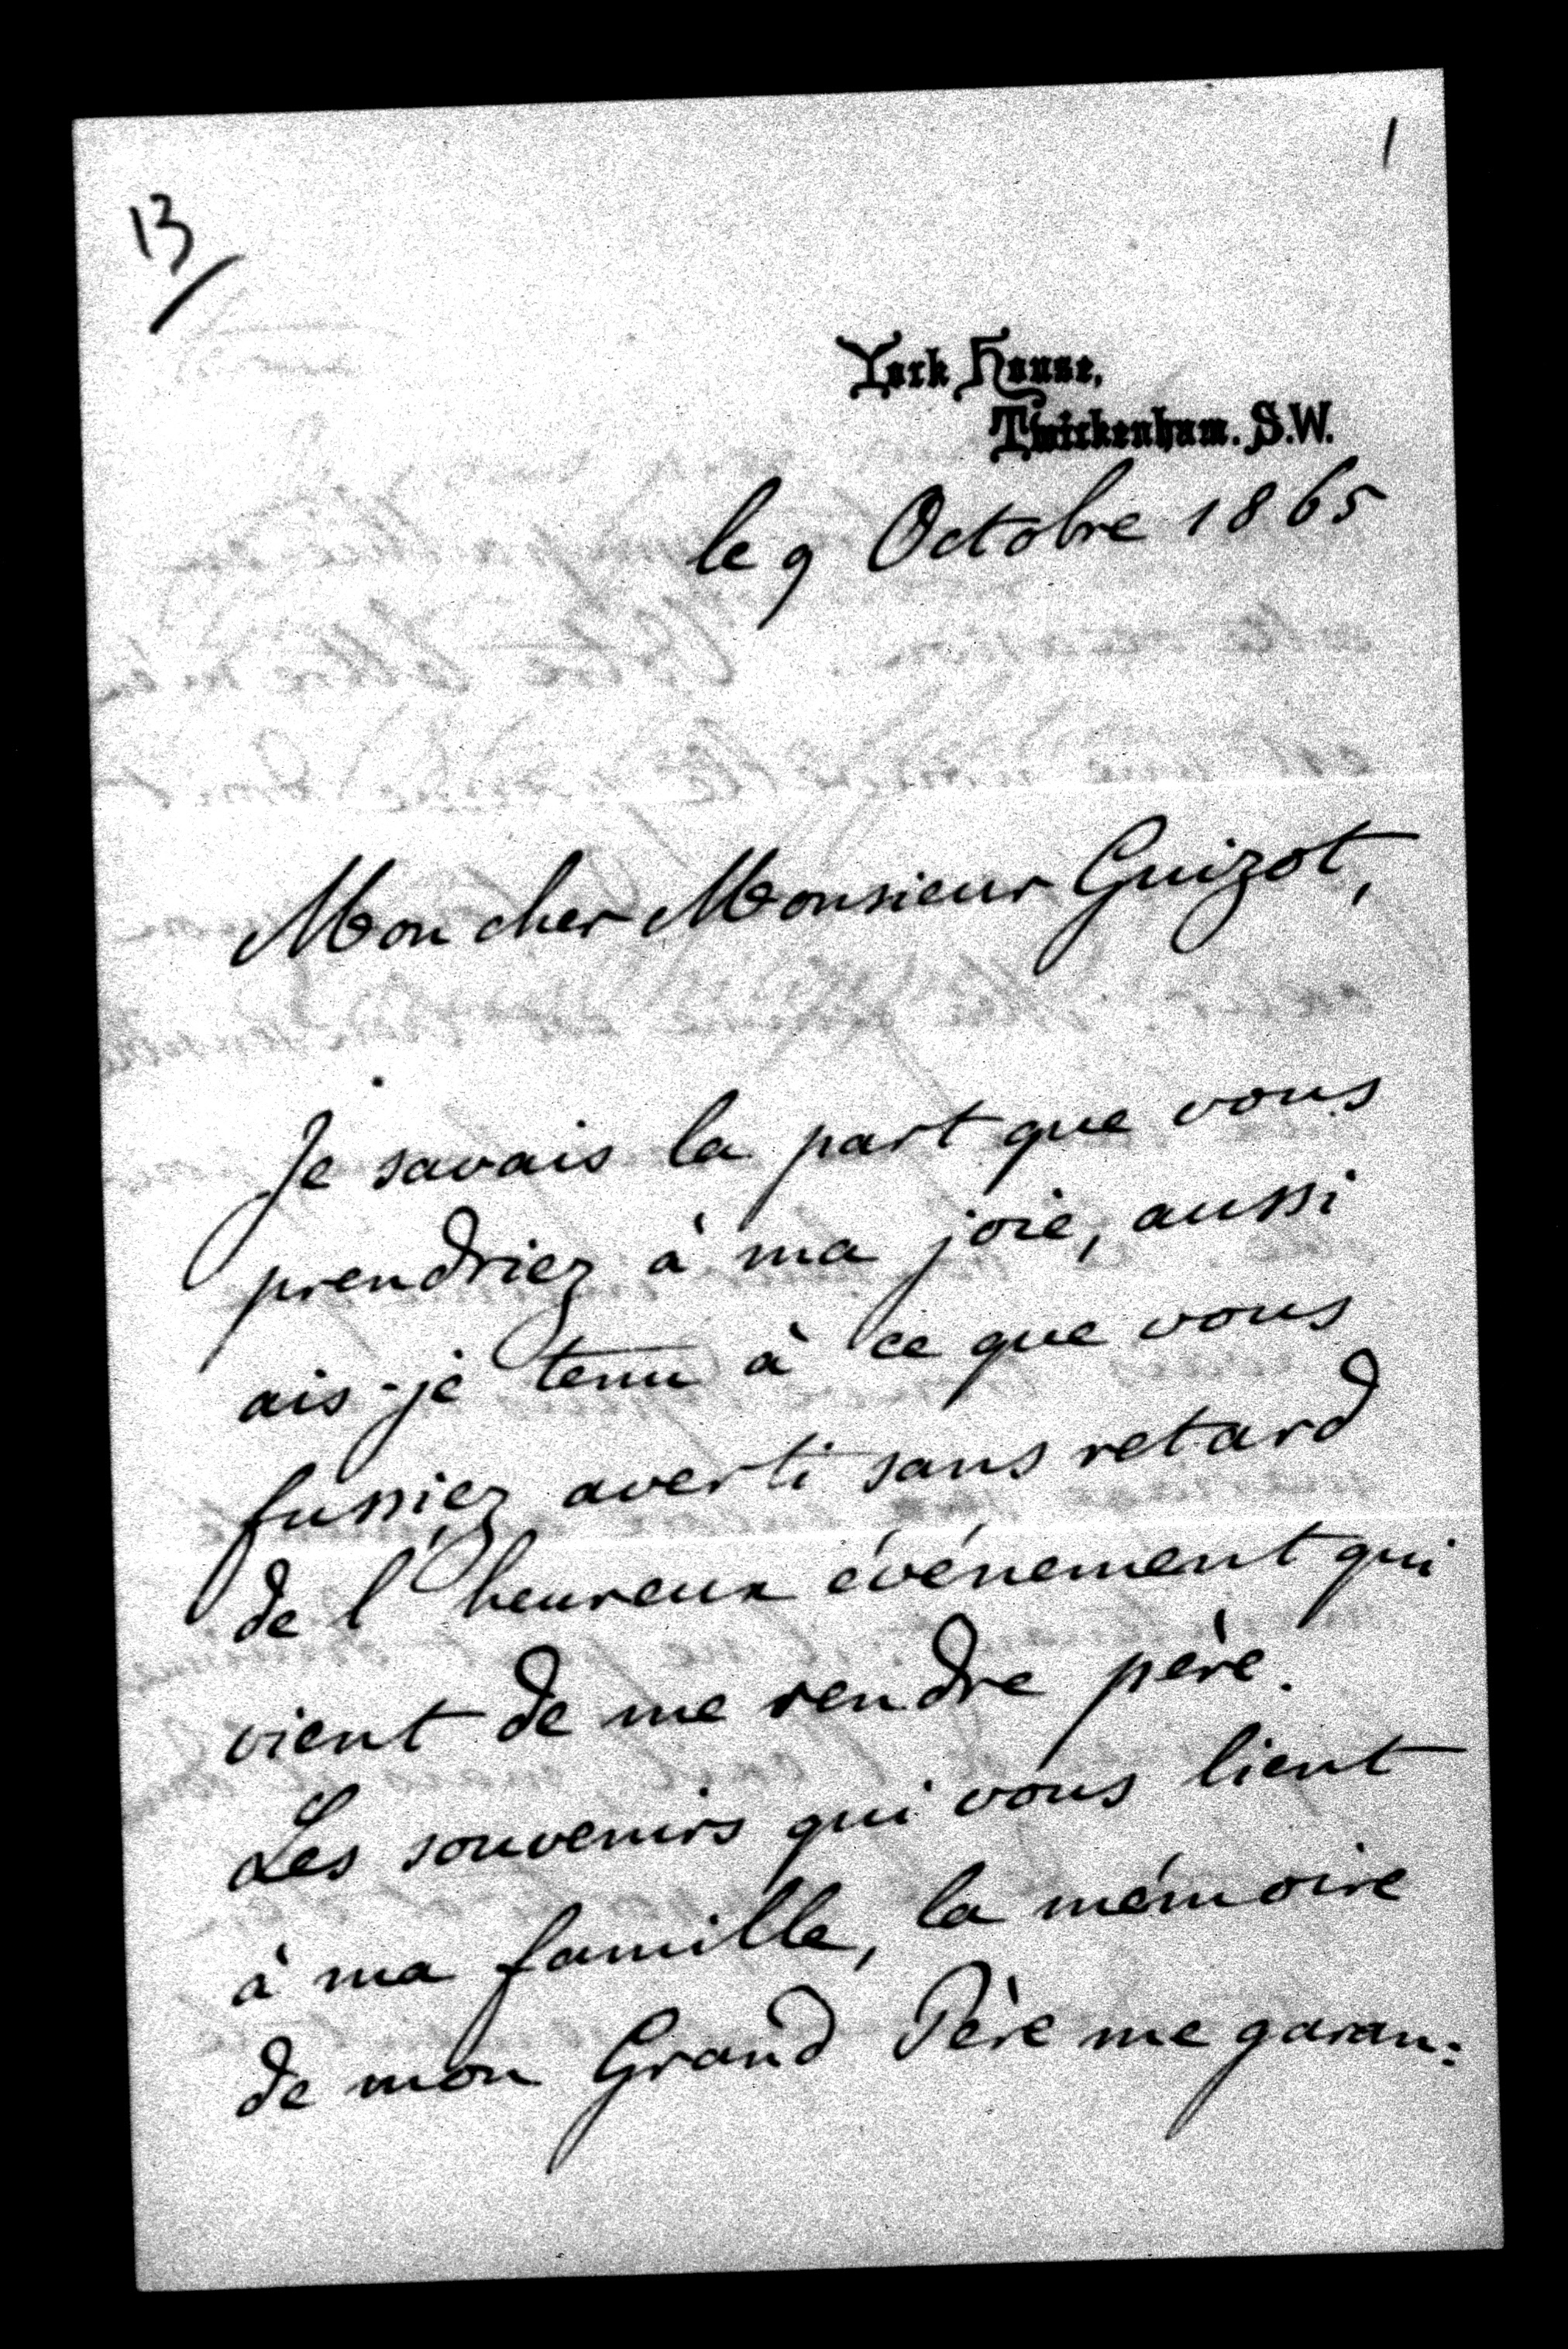 1
13
York House,
Twickenham. S.W.
le 9 Octobre 1865
Mon cher Monsieur Guizot,
Je savais la part que vous
prendriez à ma joie, aussi
ais-je tenu à ce que vous
fussiez averti sans retard
de l'heureux événement qui
vient de me rendre père.
Les souvenirs qui vous lient
à ma famille, la mémoire
de mon Grand Père me garan: